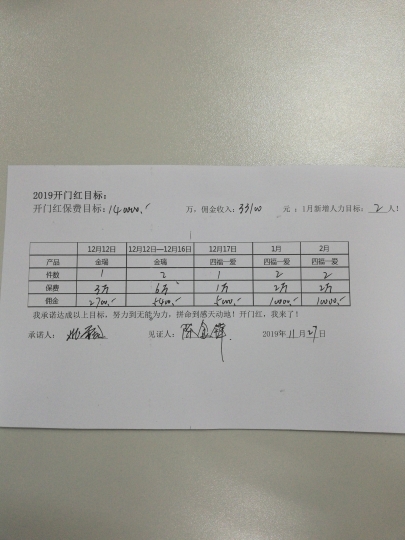 2019开门红目标:
开门红保费目标:140000.- 万,佣金收入:33100 元;1月新增人力目标:2人!
12月12日 12月12日—12月16日 12月17日 1月 2月
产品 金瑞 金瑞 四福一爱 四福一爱 四福一爱
件数 1 2 1 2 2
保费 3万 6万 1万 2万 2万
佣金 2700.- 5400.- 5000.- 10000.- 10000.-
我承诺达成以上目标,努力到无能为力,拼命到感天动地!开门红,我来了!
承诺人: 见证人:陈金锋 2019年11月27日